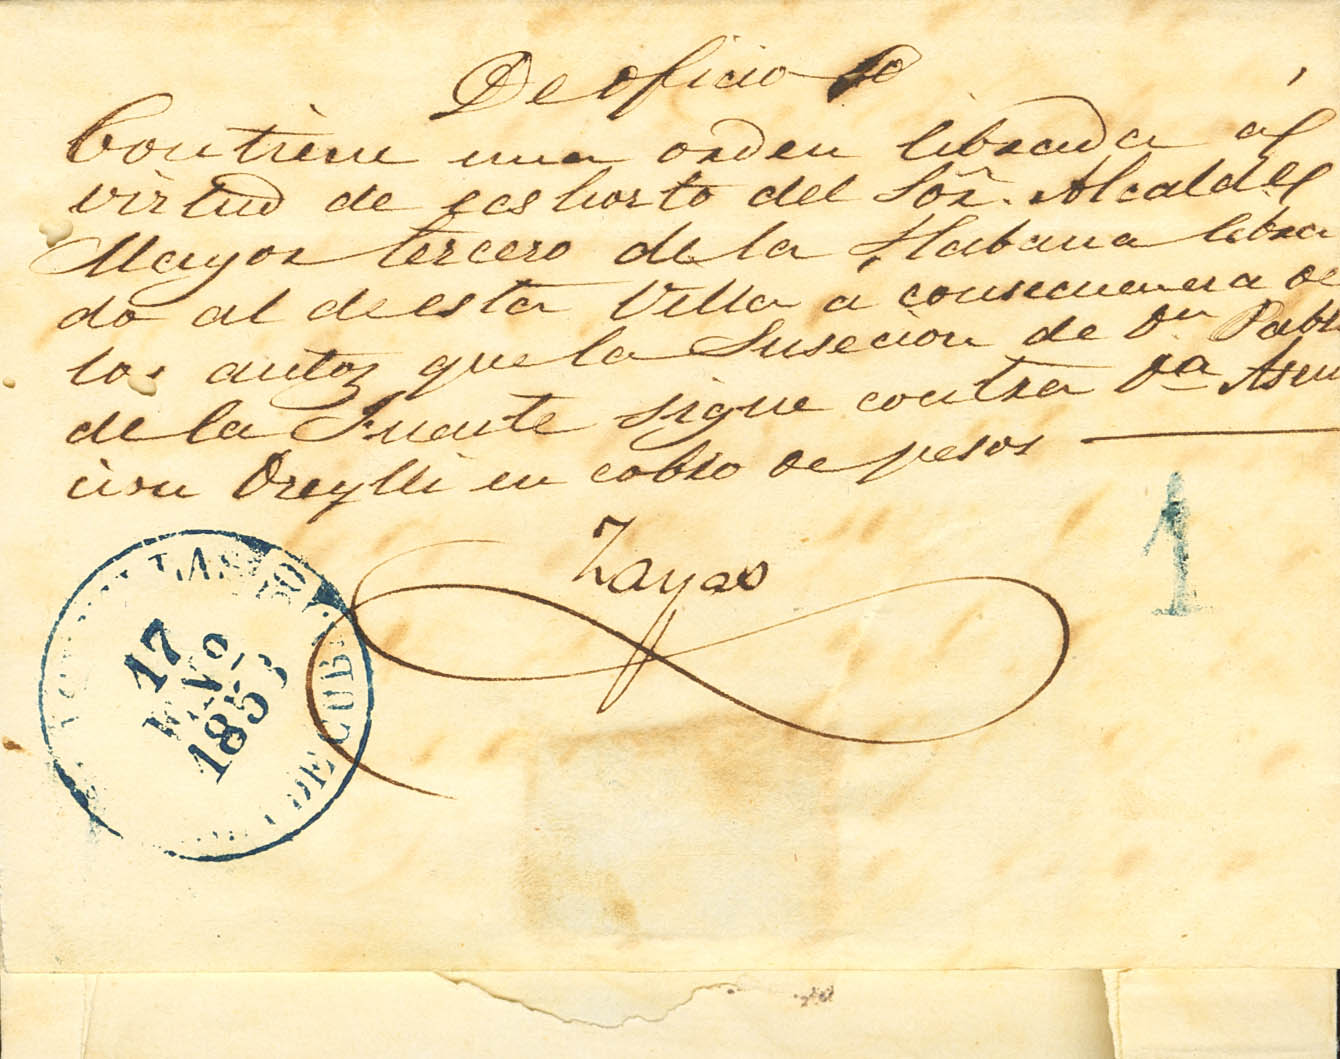 De oficio
Contiene una orden librada al
virtud de ecshorto del Sõr. Alcalde
Mayor tercero de la Habana libra
do al de esta Villa a consecuensia de
los autoz que la Susecion de Dn Pablo
de la Fuente sigue contra Da Asun
cion Oreylli en cobro de pesos
Zayas
1
17
MAYO
1853
DE CUBA